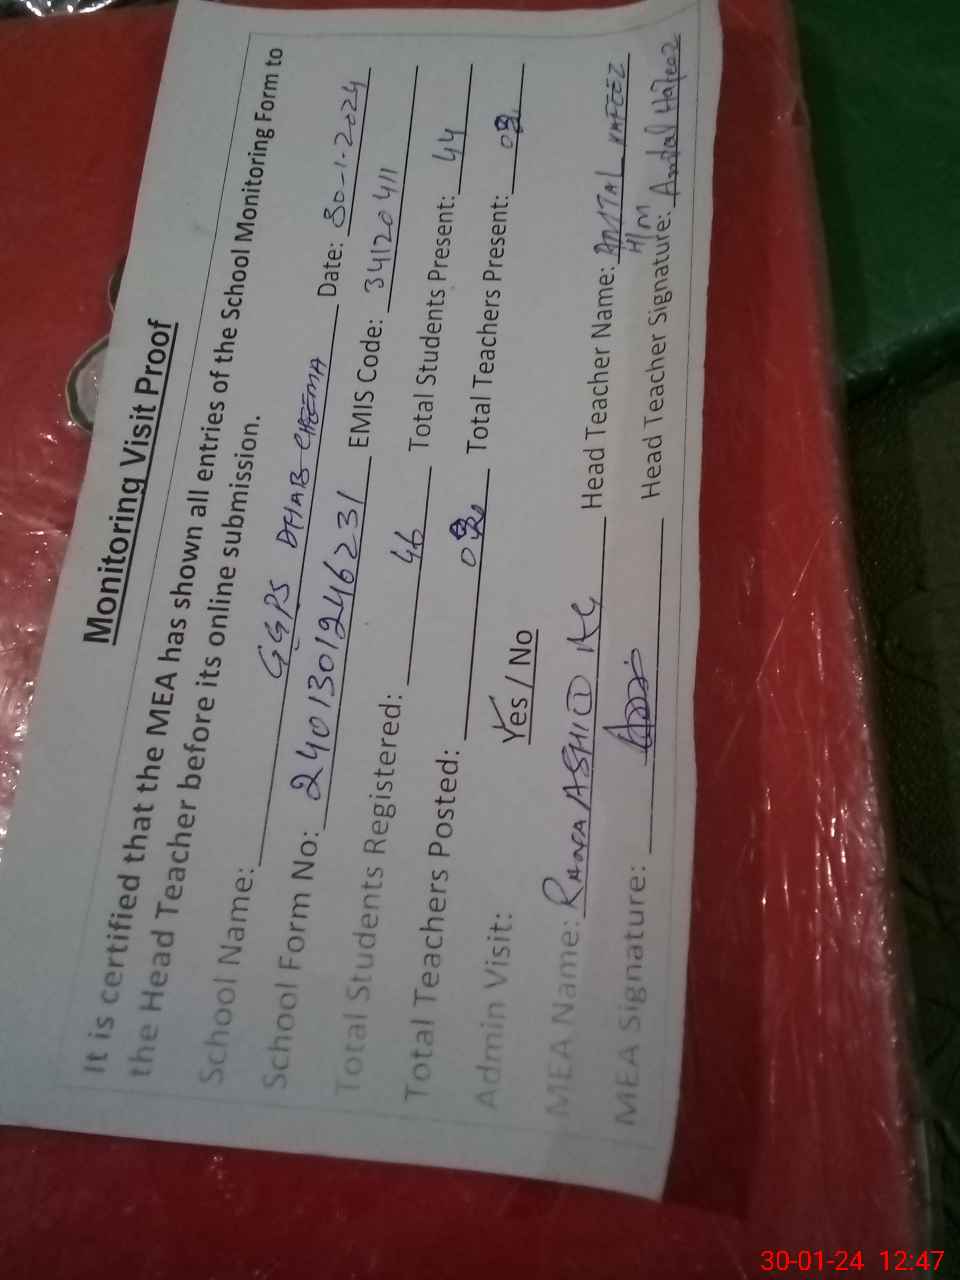 Monitoring Visit Proof
It is certified that the MEA has shown all entries of the School Monitoring Form to
the Head Teacher before its online submission.
School Name: GGPS DHAB CHEEMA Date: 30-1-2024
School Form No: 2401301246231 EMIS Code: 34120411
Total Students Registered: 46 Total Students Present: 44
Total Teachers Posted: Total Teachers Present:
Admin Visit: Yes / No
MEA Name: Head Teacher Name: HAFEEZ
H/M
MEA Signature: Head Teacher Signature: Hafeez
30-01-24 12:47